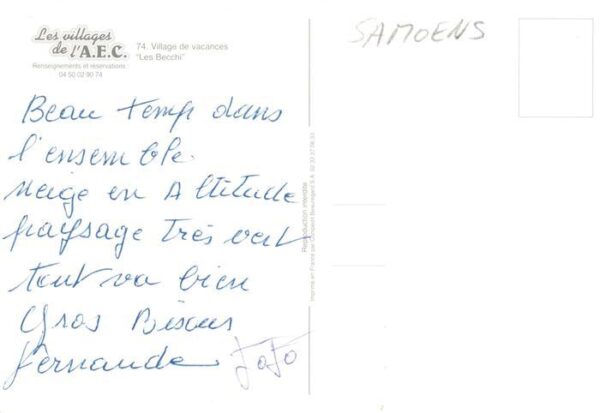 Les villages
de l'A.E.C.
Renseignements et réservations :
04 50 02 90 74
74. Village de vacances
"Les Becchi"
SAMOENS
Beau temp dans
l'ensemble.
Neige en Altitude
paysage très vert
tout va bien
Gros Bisous
Fernande JoJo
Reproduction interdite